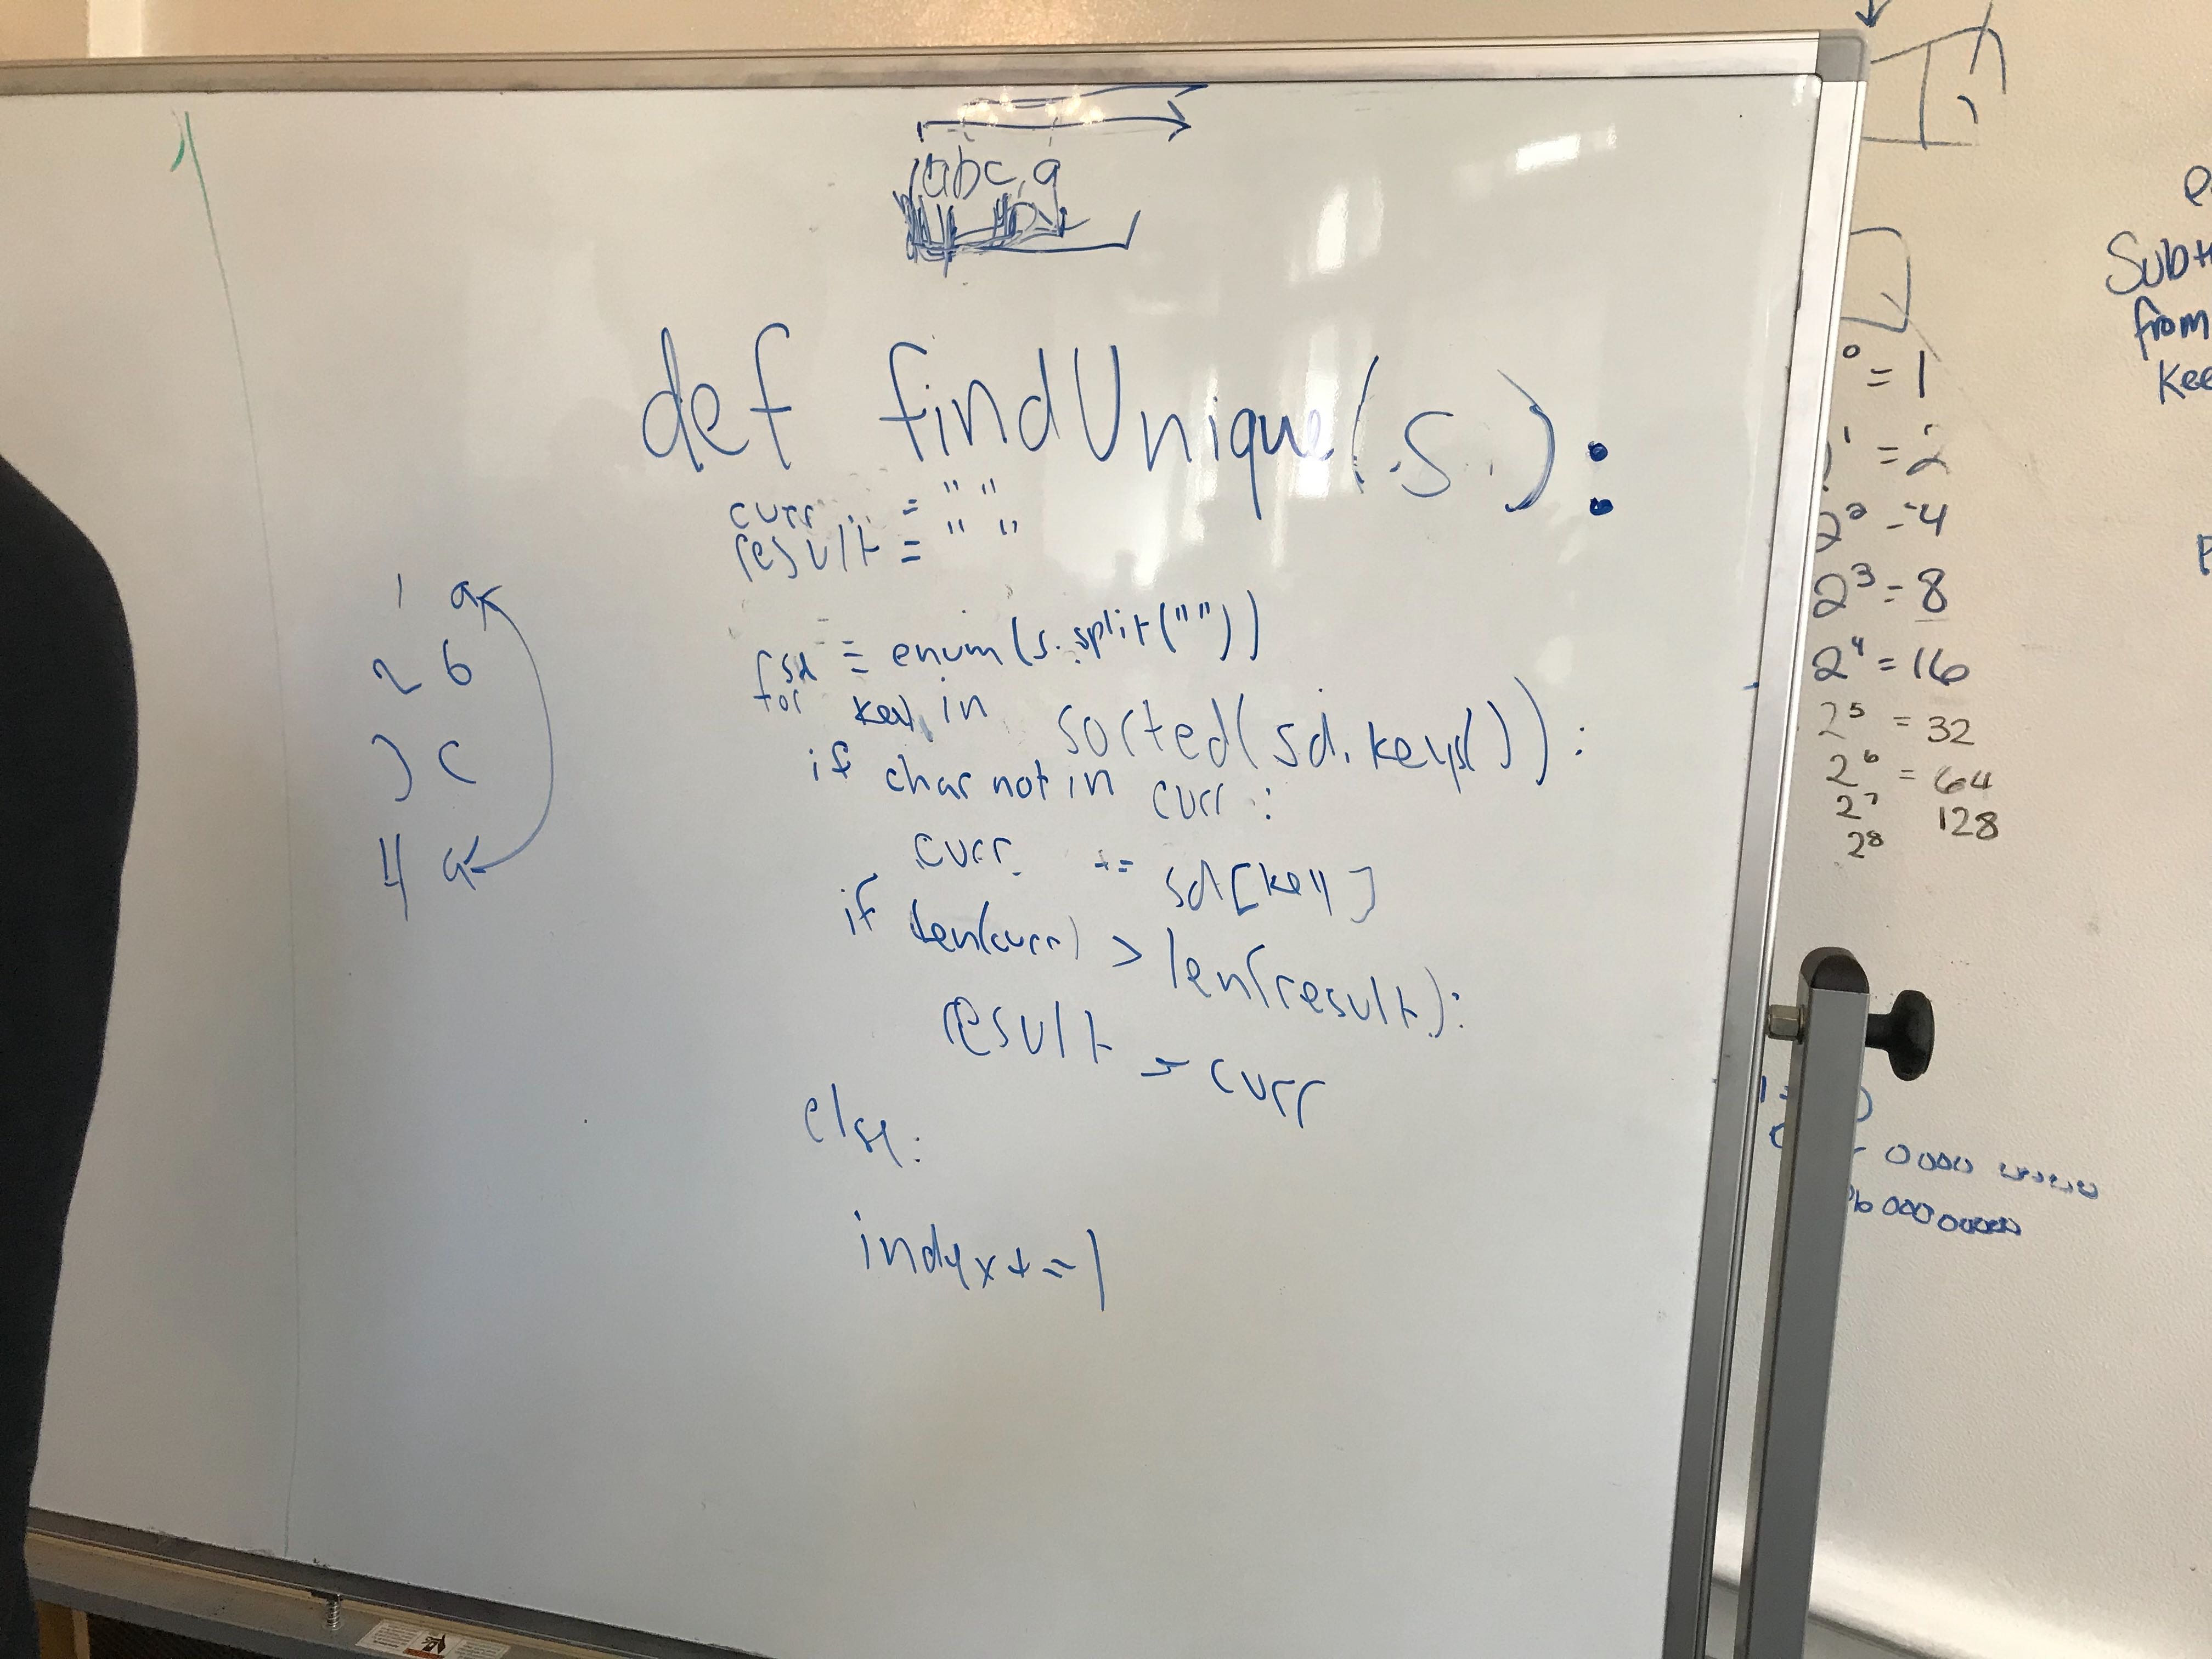 abca
def findUnique(s):
curr = " "
result = " "
sd = enum(s.split(""))
for key in sorted(sd.keys()):
if char not in curr:
curr += sd[key]
if len(curr) > len(result):
result = curr
else:
index += 1
1 a
2 b
3 c
4 a
0 = 1
1 = 2
2² = 4
2³ = 8
2⁴ = 16
2⁵ = 32
2⁶ = 64
2⁷ 128
2⁸
from